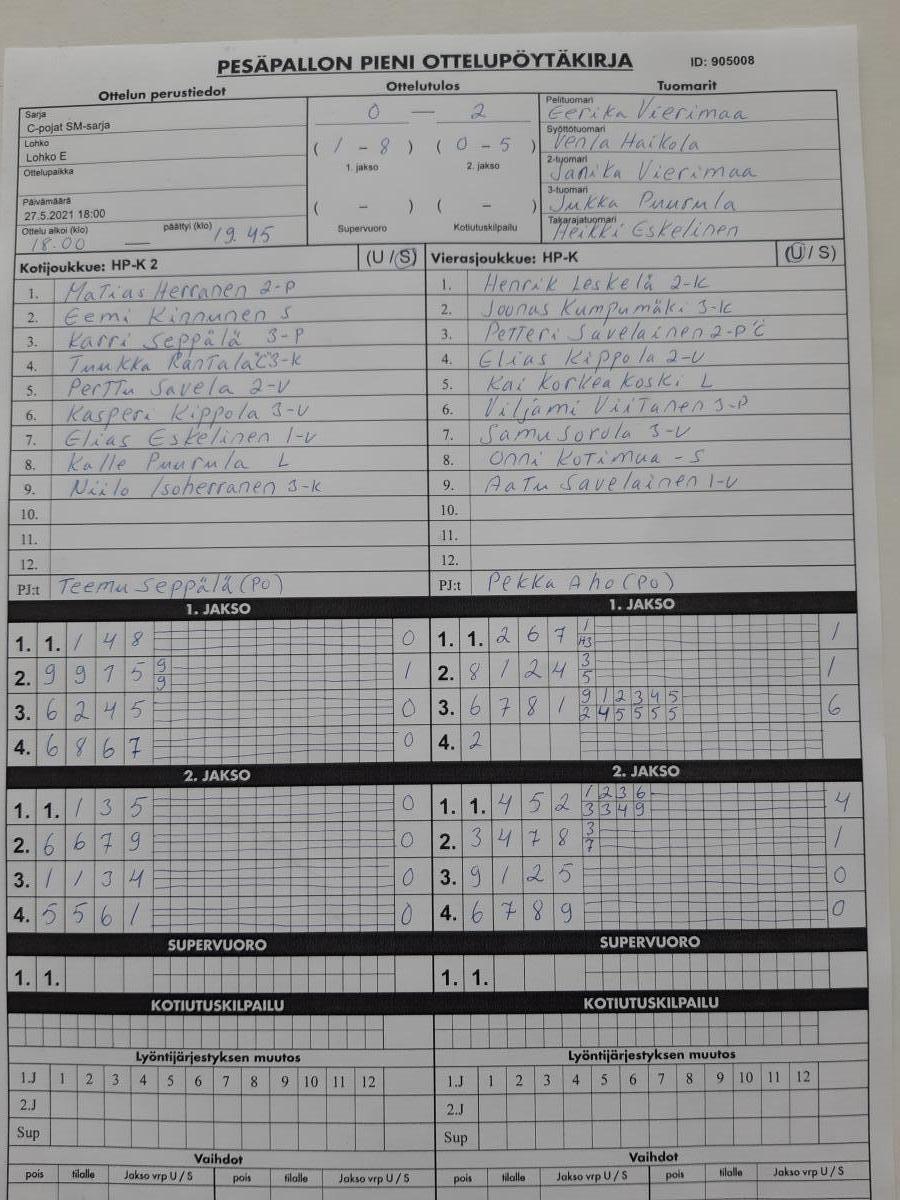 PESÄPALLON PIENI OTTELUPÖYTÄKIRJA ID: 905008
Ottelun perustiedot Ottelutulos Tuomarit
Sarja
C-pojat SM-sarja
Lohko
Lohko E
Ottelupaikka
Päivämäärä
27.5.2021 18:00
Ottelu alkoi (klo) päättyi (klo)
18.00 — 19.45
0 — 2
( 1 - 8 ) ( 0 - 5 )
1. jakso 2. jakso
( - ) ( - )
Supervuoro Kotiutuskilpailu
Pelituomari
Eerika Vierimaa
Syöttötuomari
Venla Haikola
2-tuomari
Janika Vierimaa
3-tuomari
Jukka Puurula
Takarajatuomari
Heikki Eskelinen
Kotijoukkue: HP-K 2 (U / S)
1. Matias Herranen 2-P
2. Eemi Kinnunen S
3. Karri Seppälä 3-P
4. Tuukka Rantala "C" 3-K
5. Perttu Savela 2-V
6. Kasperi Kippola 3-V
7. Elias Eskelinen 1-V
8. Kalle Puurula L
9. Niilo Isoherranen 3-K
10.
11.
12.
PJ:t Teemu Seppälä (PO)
Vierasjoukkue: HP-K (U / S)
1. Henrik Leskelä 2-K
2. Joonas Kumpumäki 3-K
3. Petteri Savelainen 2-P "C"
4. Elias Kippola 2-V
5. Kai Korkeakoski L
6. Viljami Viitanen 3-P
7. Samu Sorola 3-V
8. Onni Kotimua - S
9. Aatu Savelainen 1-V
10.
11.
12.
PJ:t Pekka Aho (PO)
1. JAKSO
1. 1. 1 4 8 0
2. 9 9 1 5 9 1
9
3. 6 2 4 5 0
4. 6 8 6 7 0
2. JAKSO
1. 1. 1 3 5 0
2. 6 6 7 9 0
3. 1 1 3 4 0
4. 5 5 6 1 0
SUPERVUORO
1. 1.
KOTIUTUSKILPAILU
Lyöntijärjestyksen muutos
1.J 1 2 3 4 5 6 7 8 9 10 11 12
2.J
Sup
Vaihdot
pois tilalle Jakso vrp U / S pois tilalle Jakso vrp U / S
1. JAKSO
1. 1. 2 6 7 1 1
H3
2. 8 1 2 4 3 1
5
3. 6 7 8 1 9 1 2 3 4 5 6
2 4 5 5 5 5
4. 2
2. JAKSO
1. 1. 4 5 2 1 2 3 6 4
3 3 4 9
2. 3 4 7 8 3 1
7
3. 9 1 2 5 0
4. 6 7 8 9 0
SUPERVUORO
1. 1.
KOTIUTUSKILPAILU
Lyöntijärjestyksen muutos
1.J 1 2 3 4 5 6 7 8 9 10 11 12
2.J
Sup
Vaihdot
pois tilalle Jakso vrp U / S pois tilalle Jakso vrp U / S